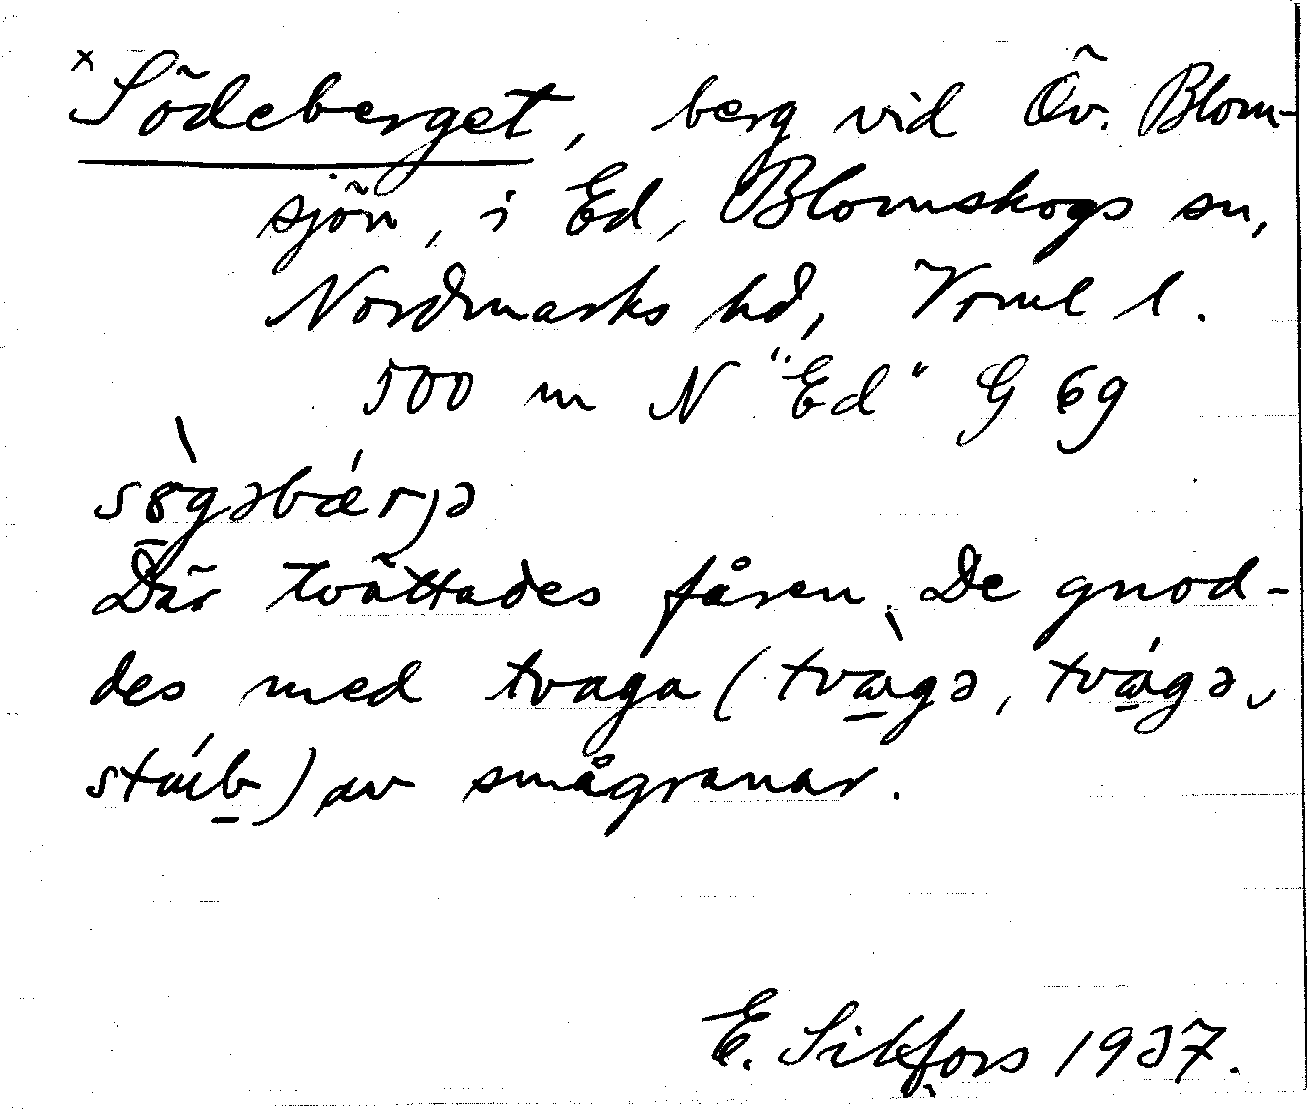 x Södeberget, berg vid Öv. Blom-
sjön, i Ed, Blomskogs sn,
Nordmarks hd, Vrml l.
500 m N "Ed" G 69
Där tvättades fåren. De gnod-
des med tvaga (
) av smågranar.
E. Sikfors 1937.